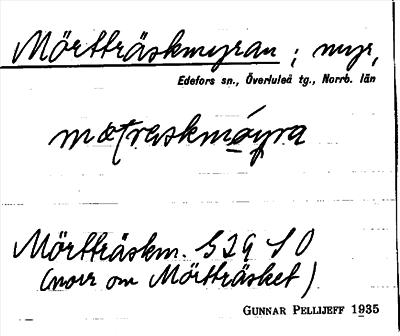 Mörtträskmyran ; myr,
Edefors sn., Överluleå tg., Norrb. län
Mörtträskm. S29 SO
(norr om Mörtträsket)
GUNNAR PELLIJEFF 1935